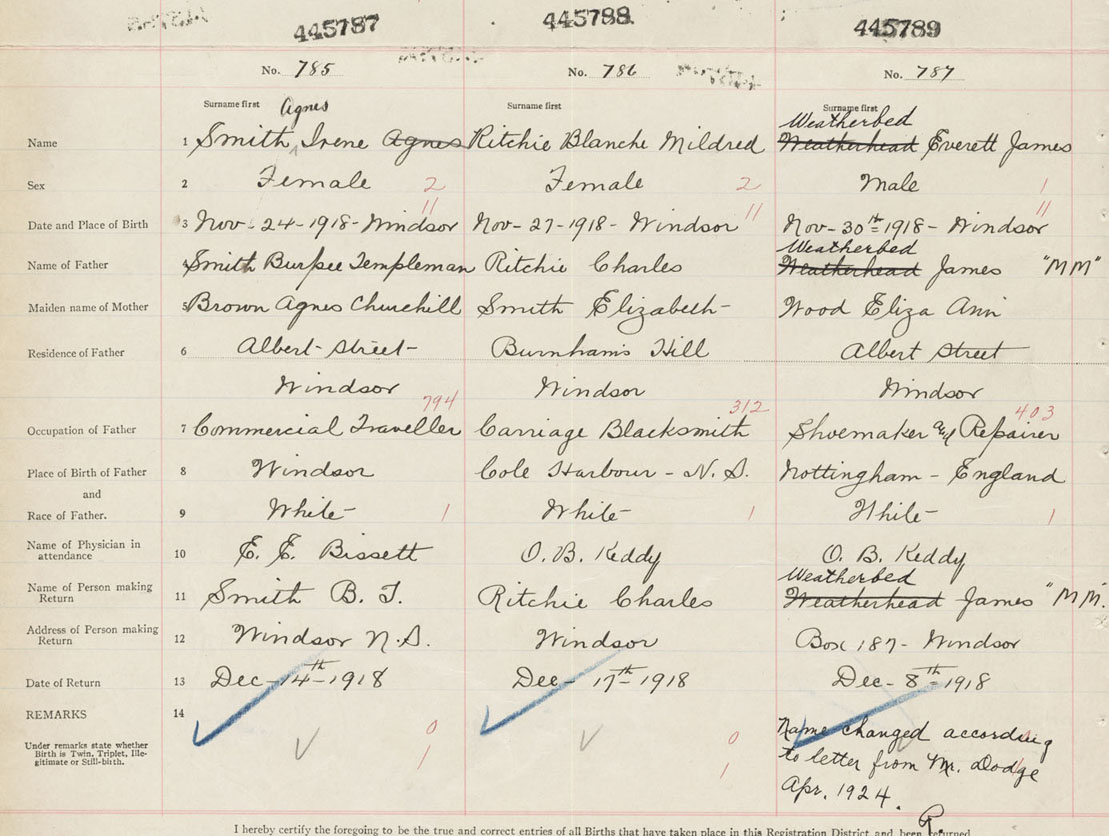 445787 445788. 445789
No. 785 No. 786 No. 787
Surname first Surname first Surname first
Agnes Weatherbed
Name 1 Smith Irene Agnes Ritchie Blanche Mildred Weatherhead Everett James
Sex 2 Female 2 Female 2 Male 1
11 11 11
Date and Place of Birth 3 Nov-24-1918-Windsor Nov-27-1918-Windsor Nov-30th-1918-Windsor
Weatherbed
Name of Father 4 Smith Burpee Templeman Ritchie Charles Weatherhead James "MM"
Maiden name of Mother 5 Brown Agnes Churchill Smith Elizabeth Wood Eliza Ann
Residence of Father 6 Albert Street Burnham's Hill Albert Street
Windsor Windsor Windsor
794 312 403
Occupation of Father 7 Commercial Traveller Carriage Blacksmith Shoemaker and Repairer
Place of Birth of Father 8 Windsor Cole Harbour - N.S. Nottingham - England
and
Race of Father. 9 White 1 White 1 White 1
Name of Physician in
attendance 10 E. E. Bissett O. B. Keddy O. B. Keddy
Weatherbed
Name of Person making
Return 11 Smith B. T. Ritchie Charles Weatherhead James "MM.
Address of Person making
Return 12 Windsor N.S. Windsor Box 187 - Windsor
Date of Return 13 Dec-14th-1918 Dec-17th-1918 Dec-8th-1918
REMARKS 14
Under remarks state whether
Birth is Twin, Triplet, Ille-
gitimate or Still-birth.
0 0
1 1
Name changed according
to letter from Mr. Dodge
Apr. 1924.
R.
I hereby certify the foregoing to be the true and correct entries of all Births that have taken place in this Registration District and been returned